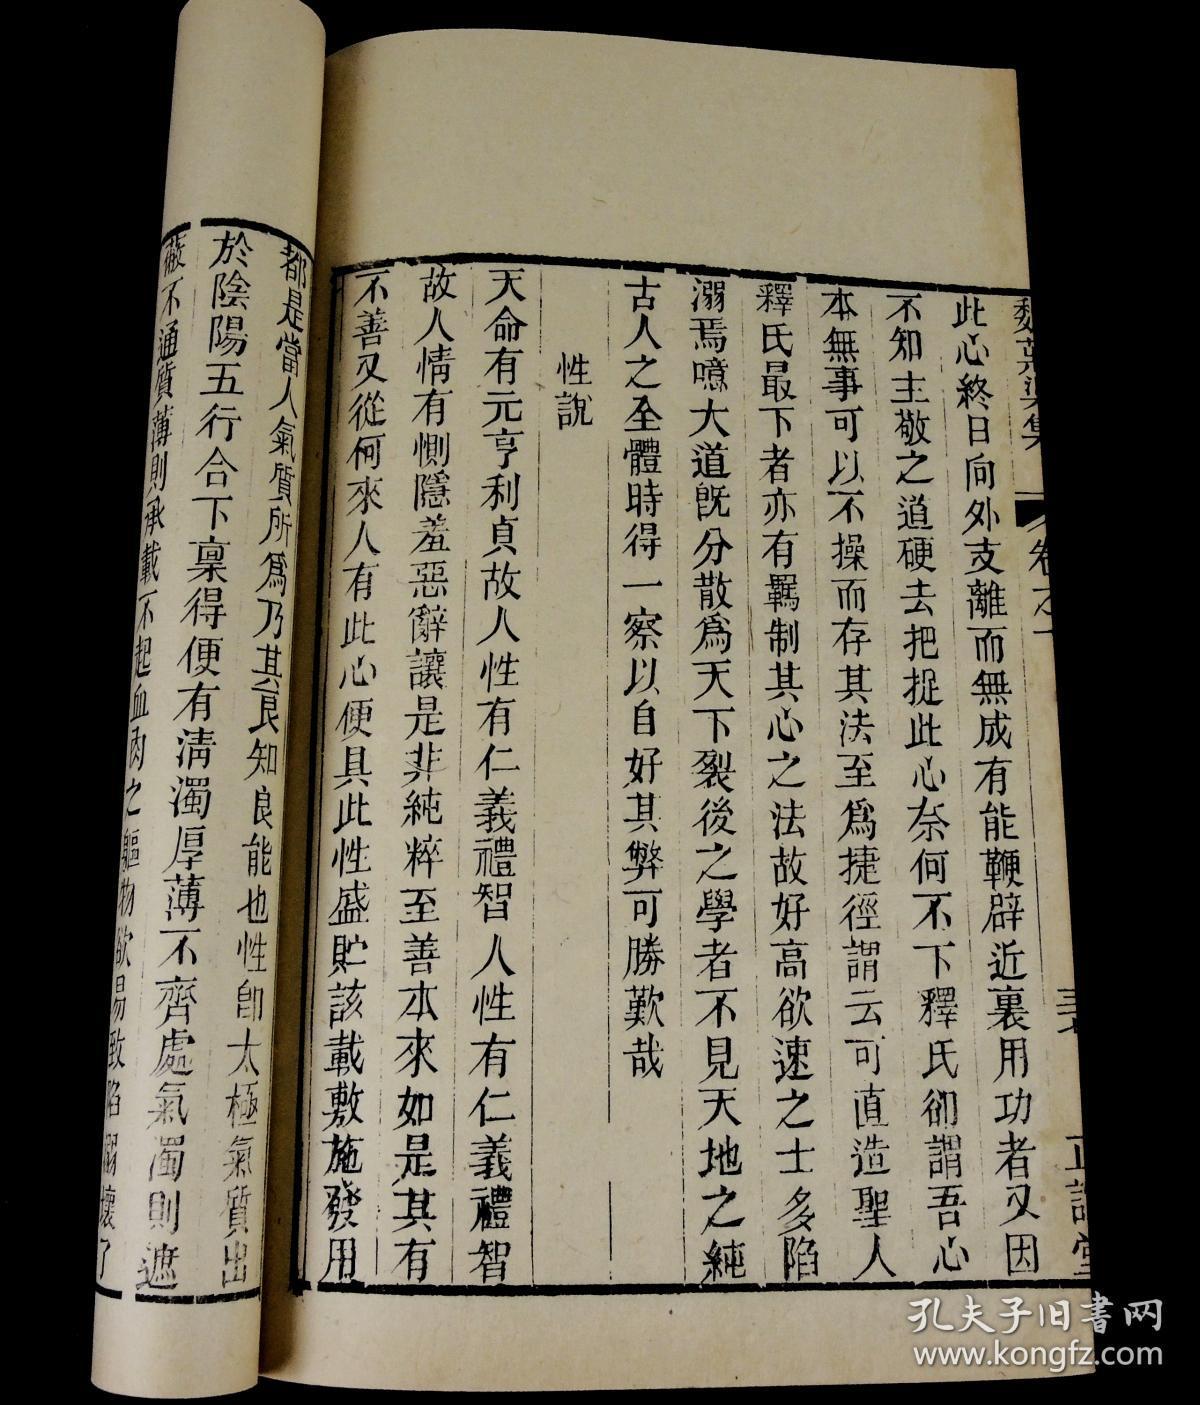 此心終日向外支離而無成有能鞭辟近裏用功者又因
不知主敬之道硬去把捉此心奈何不下釋氏卻謂吾心
本無事可以不操而存其法至爲捷徑謂云可直造聖人
釋氏最下者亦有羈制其心之法故好高欲速之士多陷
溺焉噫大道旣分散爲天下裂後之學者不見天地之純
古人之全體時得一察以自好其弊可勝歎哉
性說
天命有元亨利貞故人性有仁義禮智人性有仁義禮智
故人情有惻隱羞惡辭讓是非純粹至善本來如是其有
不善又從何來人有此心便具此性盛貯該載敷施發用
都是當人氣質所爲乃其良知良能也性卽太極氣質出
於陰陽五行合下稟得便有淸濁厚薄不齊處氣濁則遮
蔽不通質薄則承載不起血肉之軀物欲易致陷溺壞了
孔夫子旧书网
www.kongfz.com